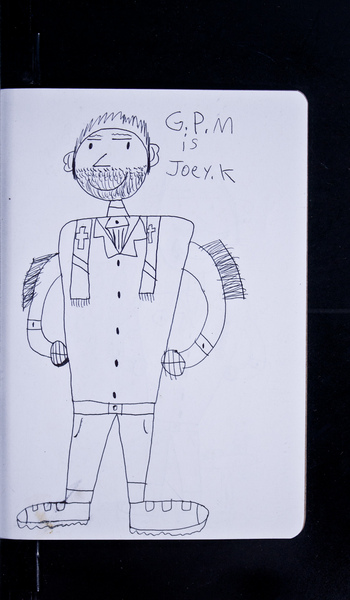 G.P.M
is
Joey.K